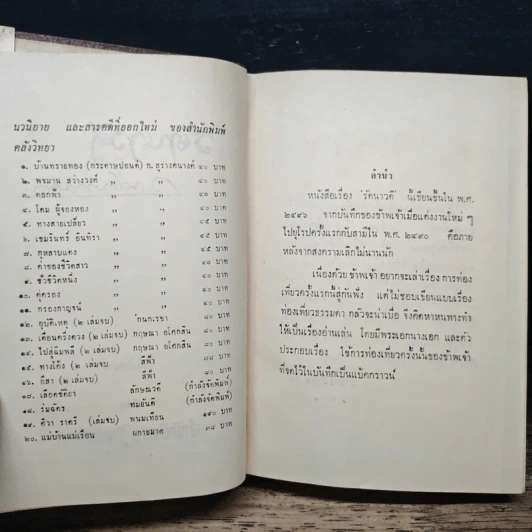 นวนิยาย และสารคดีที่ออกใหม่ ของสำนักพิมพ์
คลังวิทยา
๑. บ้านทรายทอง (กระดาษปอนด์) ก. สุรางคนางค์ ๔๐ บาท
๒. พจมาน สว่างวงศ์ " " ๔๐ บาท
๓. ดอกฟ้า " " ๔๐ บาท
๔. โดม ผู้จองหอง " " ๔๐ บาท
๕. ทางสายเปลี่ยว " " ๔๕ บาท
๖. เขมรินทร์ อินทิรา " " ๔๕ บาท
๗. กุหลาบแดง " " ๔๕ บาท
๘. ค่าของชีวิตสาว " " ๔๐ บาท
๙. ชั่วชีวิตหนึ่ง " " ๔๐ บาท
๑๐. คู่ครอง " " ๔๐ บาท
๑๑. กรองกาญจน์ " " ๔๐ บาท
๑๒. อุบัติเหตุ (๒ เล่มจบ) กนกเรขา ๘๐ บาท
๑๓. เดือนครึ่งดวง (๒ เล่มจบ) กฤษณา อโศกสิน ๘๐ บาท
๑๔. ไปสู่นิมพลี (๒ เล่มจบ) กฤษณา อโศกสิน ๘๐ บาท
๑๕. ทางโค้ง (๒ เล่มจบ) สีฟ้า ๘๐ บาท
๑๖. อีสา (๒ เล่มจบ) สีฟ้า ๘๐ บาท
๑๗. เลือดขัตติยา ลักษณวดี (กำลังจัดพิมพ์)
๑๘. ร่มฉัตร ทมยันตี (กำลังจัดพิมพ์)
๑๙. ศิวา ราตรี (เล่มจบ) พนมเทียน ๑๙๐ บาท
๒๐. แม่บ้านแม่เรียน ผกายมาศ ๓๘ บาท
คำนำ
หนังสือเรื่อง 'รัตนาวดี' นี้เขียนขึ้นใน พ.ศ.
๒๔๙๖ จากบันทึกของข้าพเจ้าเมื่อแต่งงานใหม่ ๆ
ไปยุโรปครั้งแรกกับสามีใน พ.ศ. ๒๔๙๐ คือภาย
หลังจากสงครามเลิกไม่นานนัก
เนื่องด้วย ข้าพเจ้า อยากจะเล่าเรื่อง การท่อง
เที่ยวครั้งแรกนี้สู่กันฟัง แต่ไม่ชอบเขียนแบบเรื่อง
ท่องเที่ยวธรรมดา กลัวจะน่าเบื่อ จึงคิดหาหนทางทำ
ให้เป็นเรื่องอ่านเล่น โดยมีพระเอกนางเอก และตัว
ประกอบเรื่อง ใช้การท่องเที่ยวครั้งนั้นของข้าพเจ้า
ที่จดไว้ในบันทึกเป็นแบ้คกราวน์